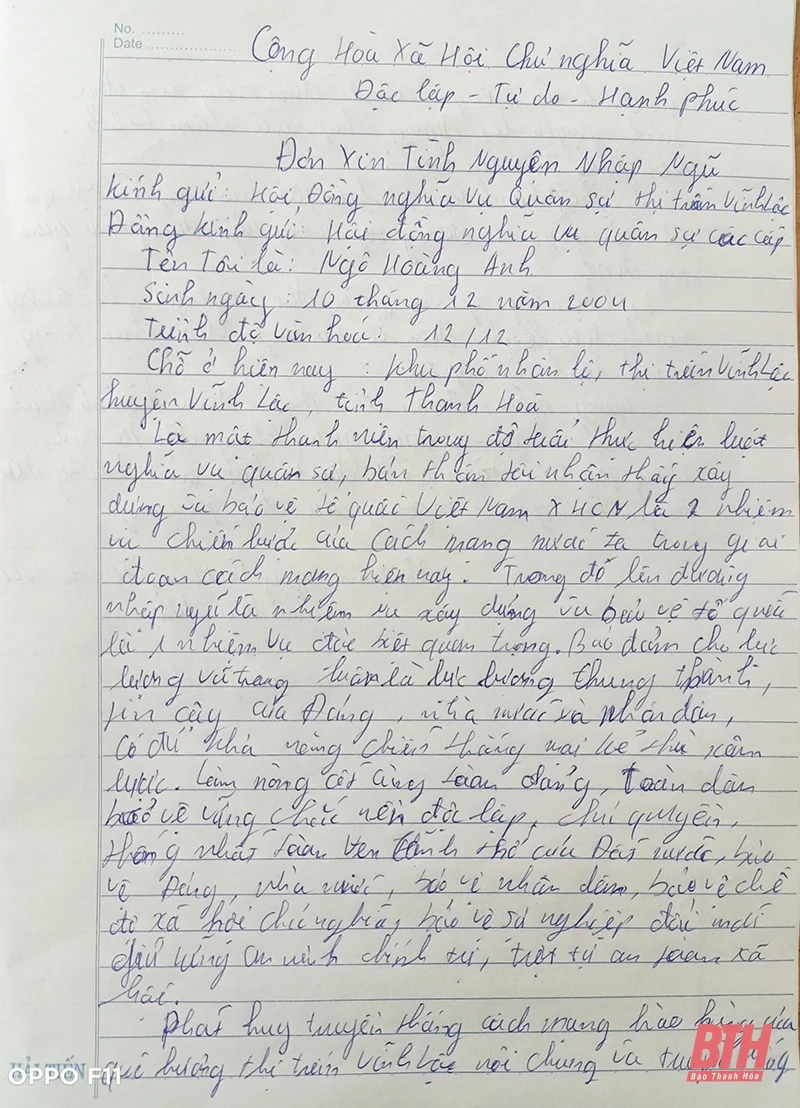 No. .........
Date ..................
Cộng Hoà Xã Hội Chủ nghĩa Việt Nam
Độc lập - Tự do - Hạnh phúc
Đơn Xin Tình Nguyện Nhập Ngũ
Kính gửi: Hội Đồng nghĩa vụ Quân sự thị trấn Vĩnh Lộc
Đồng kính gửi: Hội đồng nghĩa vụ quân sự các cấp
Tên Tôi là: Ngô Hoàng Anh
Sinh ngày: 10 tháng 12 năm 2004
Trình độ văn hoá: 12/12
Chỗ ở hiện nay: Khu phố nhân lộ, thị trấn Vĩnh Lộc
huyện Vĩnh Lộc, tỉnh Thanh Hoá
Là một thanh niên trong độ tuổi thực hiện luật
nghĩa vụ quân sự, bản thân tôi nhận thấy xây
dựng và bảo vệ tổ quốc Việt Nam XHCN là 2 nhiệm
vụ chiến lược của Cách mạng nước ta trong giai
đoạn cách mạng hiện nay. Trong đó lên đường
nhập ngũ là nhiệm vụ xây dựng và bảo vệ tổ quốc
là 1 nhiệm vụ đặc biệt quan trọng. Bảo đảm cho lực
lượng vũ trang luôn là lực lượng trung thành,
tin cậy của Đảng, nhà nước và nhân dân,
có đủ khả năng chiến thắng mọi kẻ thù xâm
lược. Làm nòng cốt cùng toàn đảng, toàn dân
bảo vệ vững chắc nền độc lập, chủ quyền,
thống nhất toàn vẹn lãnh thổ của Đất nước, bảo
vệ Đảng, nhà nước, bảo vệ nhân dân, bảo vệ chế
độ xã hội chủ nghĩa, bảo vệ sự nghiệp đổi mới
giữ vững an ninh chính trị, trật tự an toàn xã
hội.
Phát huy truyền thống cách mạng hào hùng của
quê hương thị trấn Vĩnh Lộc nói chung và
BTH
Báo Thanh Hóa
HẢI TIẾN
OPPO F11